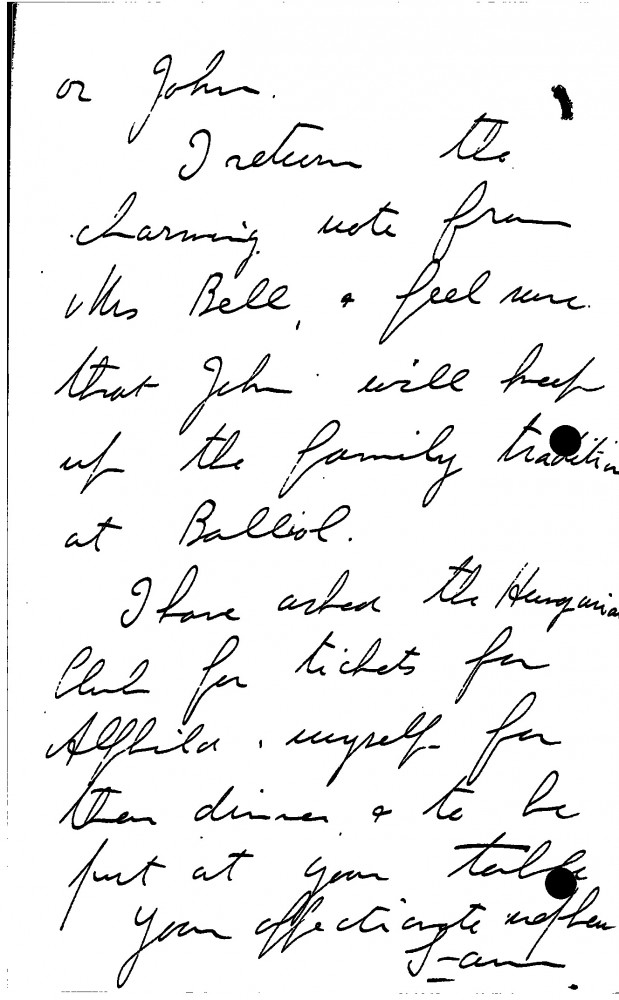 or John.
I return the
charming note from
Mrs Bell, & feel sure
that John will keep
up the family tradition
at Balliol.
I have asked the Hungarian
Club for tickets for
Alfhild & myself for
their dinner & to be
put at your table
Your affectionate nephew